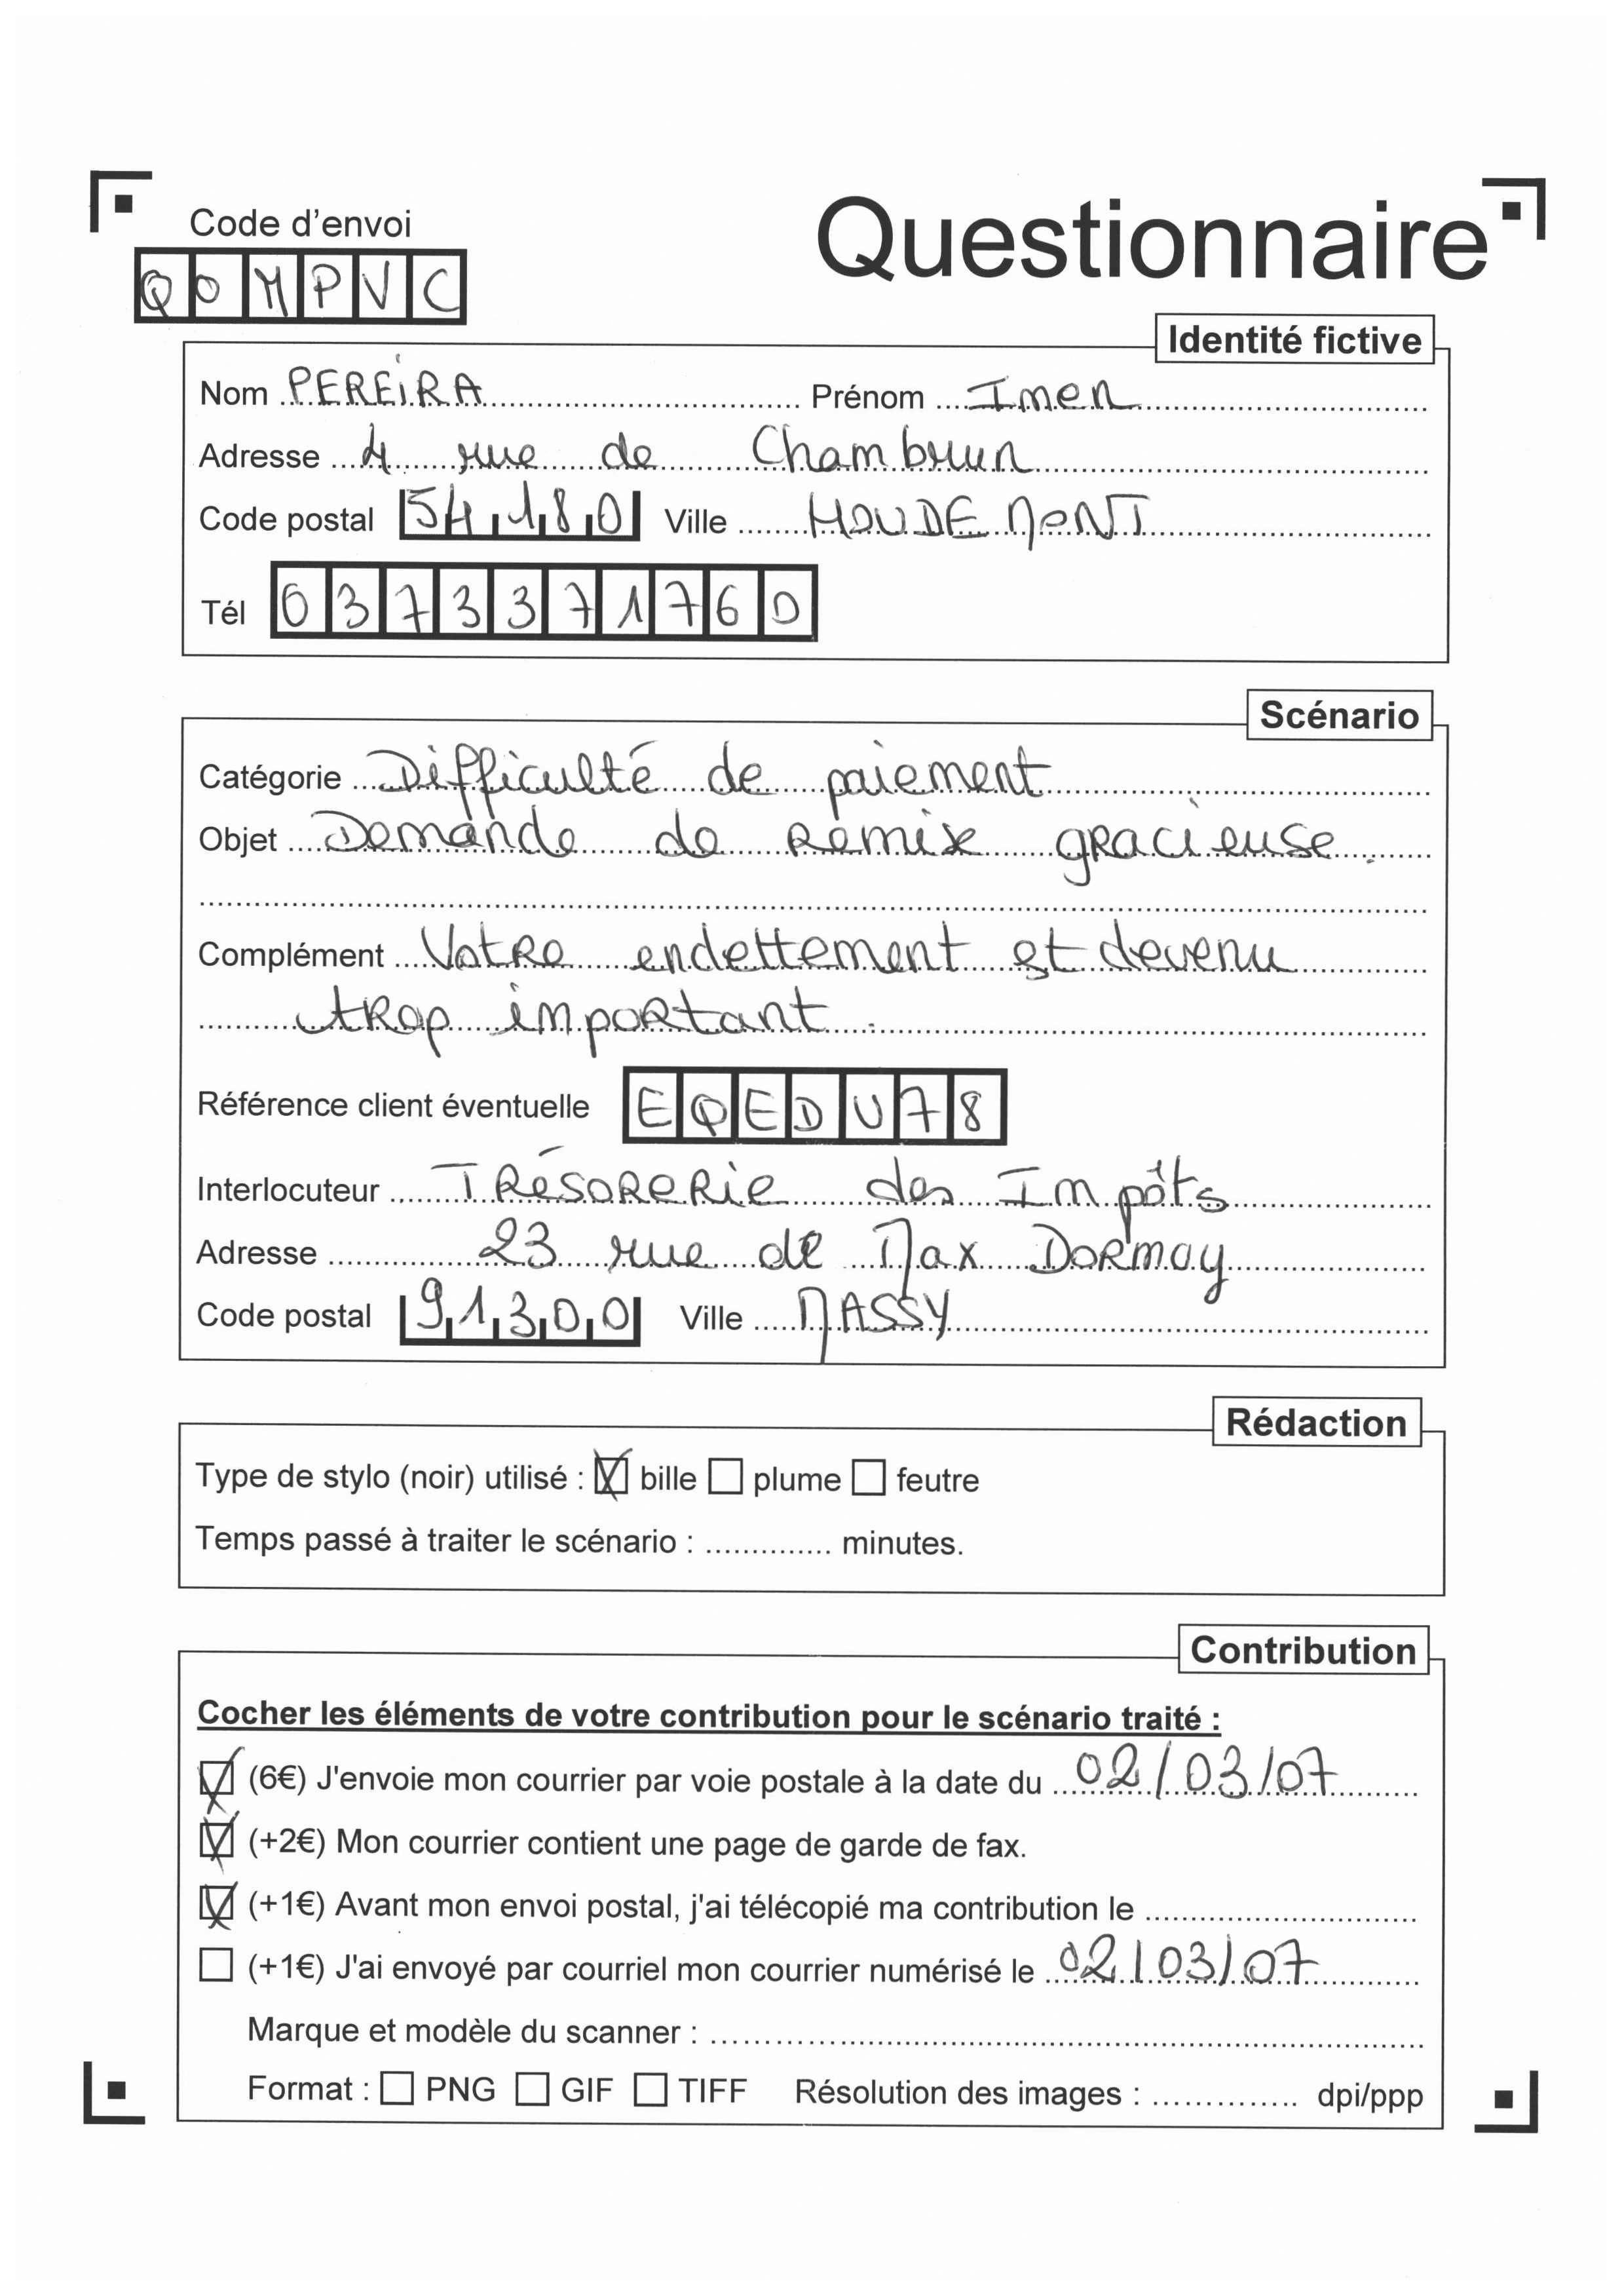 Code d'envoi
Questionnaire
QOMPVC
Identité fictive
Nom PEREIRA Prénom Imen
Adresse 4 rue de Chambrun
Code postal 54180 Ville HOUDEMONT
Tél 0373371760
Scénario
Catégorie Difficulté de paiement
Objet Demande de remise gracieuse.
Complément Votre endettement est devenu
trop important.
Référence client éventuelle EQEDU78
Interlocuteur Trésorerie des Impôts
Adresse 23 rue de Max Dormoy
Code postal 91300 Ville MASSY
Rédaction
Type de stylo (noir) utilisé : bille plume feutre
Temps passé à traiter le scénario : .............. minutes.
Contribution
Cocher les éléments de votre contribution pour le scénario traité :
(6€) J'envoie mon courrier par voie postale à la date du 02/03/07
(+2€) Mon courrier contient une page de garde de fax.
(+1€) Avant mon envoi postal, j'ai télécopié ma contribution le
(+1€) J'ai envoyé par courriel mon courrier numérisé le 02/03/07
Marque et modèle du scanner :
Format : PNG GIF TIFF Résolution des images : .............. dpi/ppp